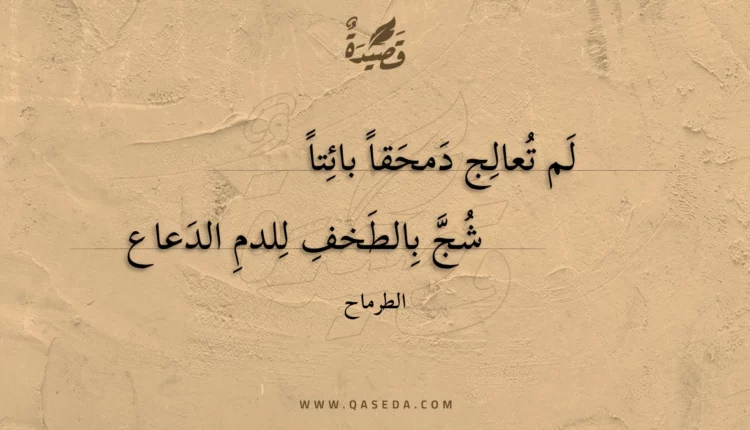 قَصِيدَةٌ
لَم تُعالِج دَمحَقاً بائِتاً
شُجَّ بِالطَخفِ لِلدمِ الدَعاع
الطرماح
WWW.QASEDA.COM